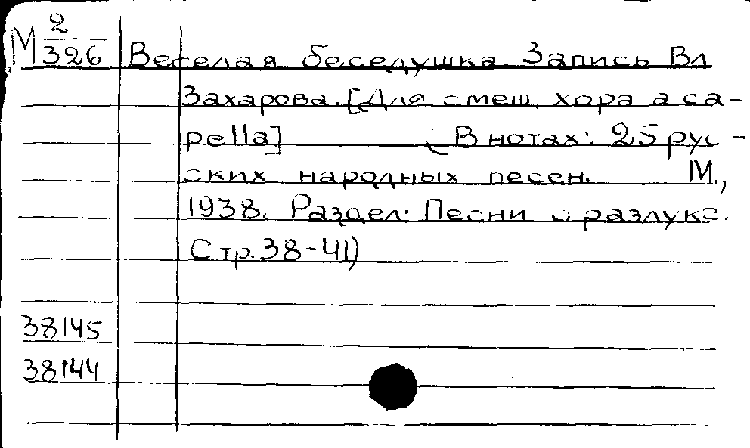 М 2/326 Веселая беседушка. Запись Вл
Захарова. [Для смеш. хора а са-
pella] (В нотах: 25 рус-
ских народных песен. М.,
1938. Раздел: Песни о разлуке.
Стр. 38-41)
38145
38144